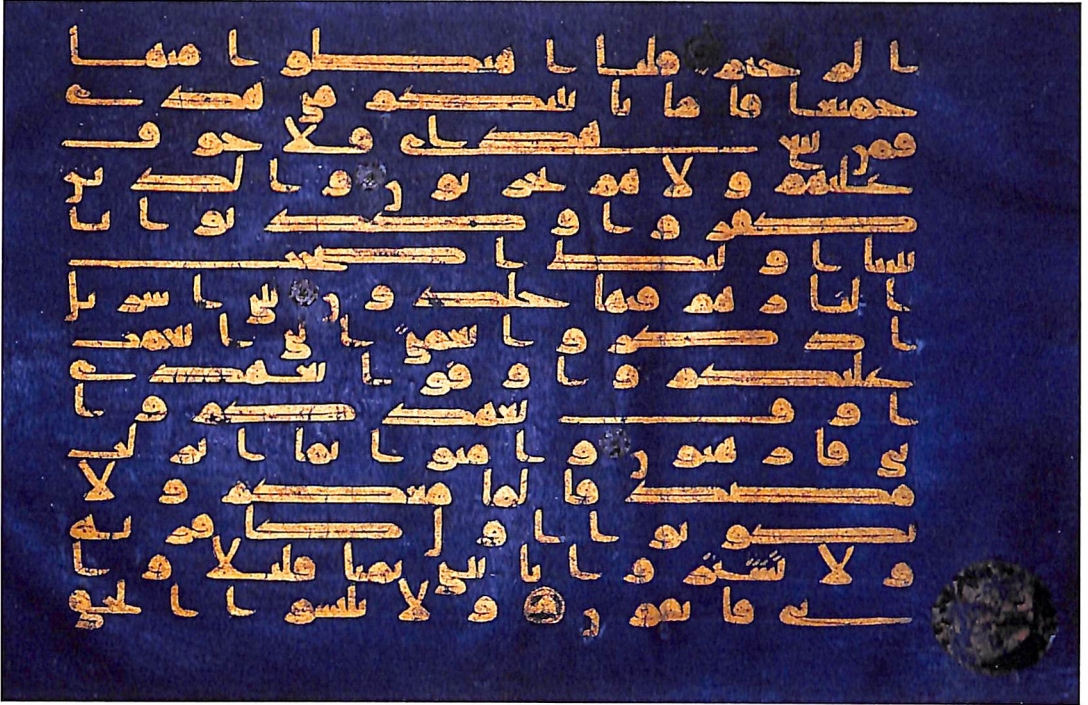 الرحيم قلنا اهبطوا منها
جميعا فاما ياتينكم مني هدى
فمن تبع هداي فلا خوف
عليهم ولا هم يحزنون والذين
كفروا وكذبوا بايا
تنا اولئك اصحب
النار هم فيها خلدون يبني اسريل
اذكروا نعمتي التي انعمت
عليكم واوفوا بعهدي
اوف بعهدكم وا
يي فارهبون وامنوا بما انزلت
مصدقا لما معكم ولا
تكونوا اول كافر به
ولا تشتروا بايتي ثمنا قليلا وا
يي فاتقون ولا تلبسوا الحق